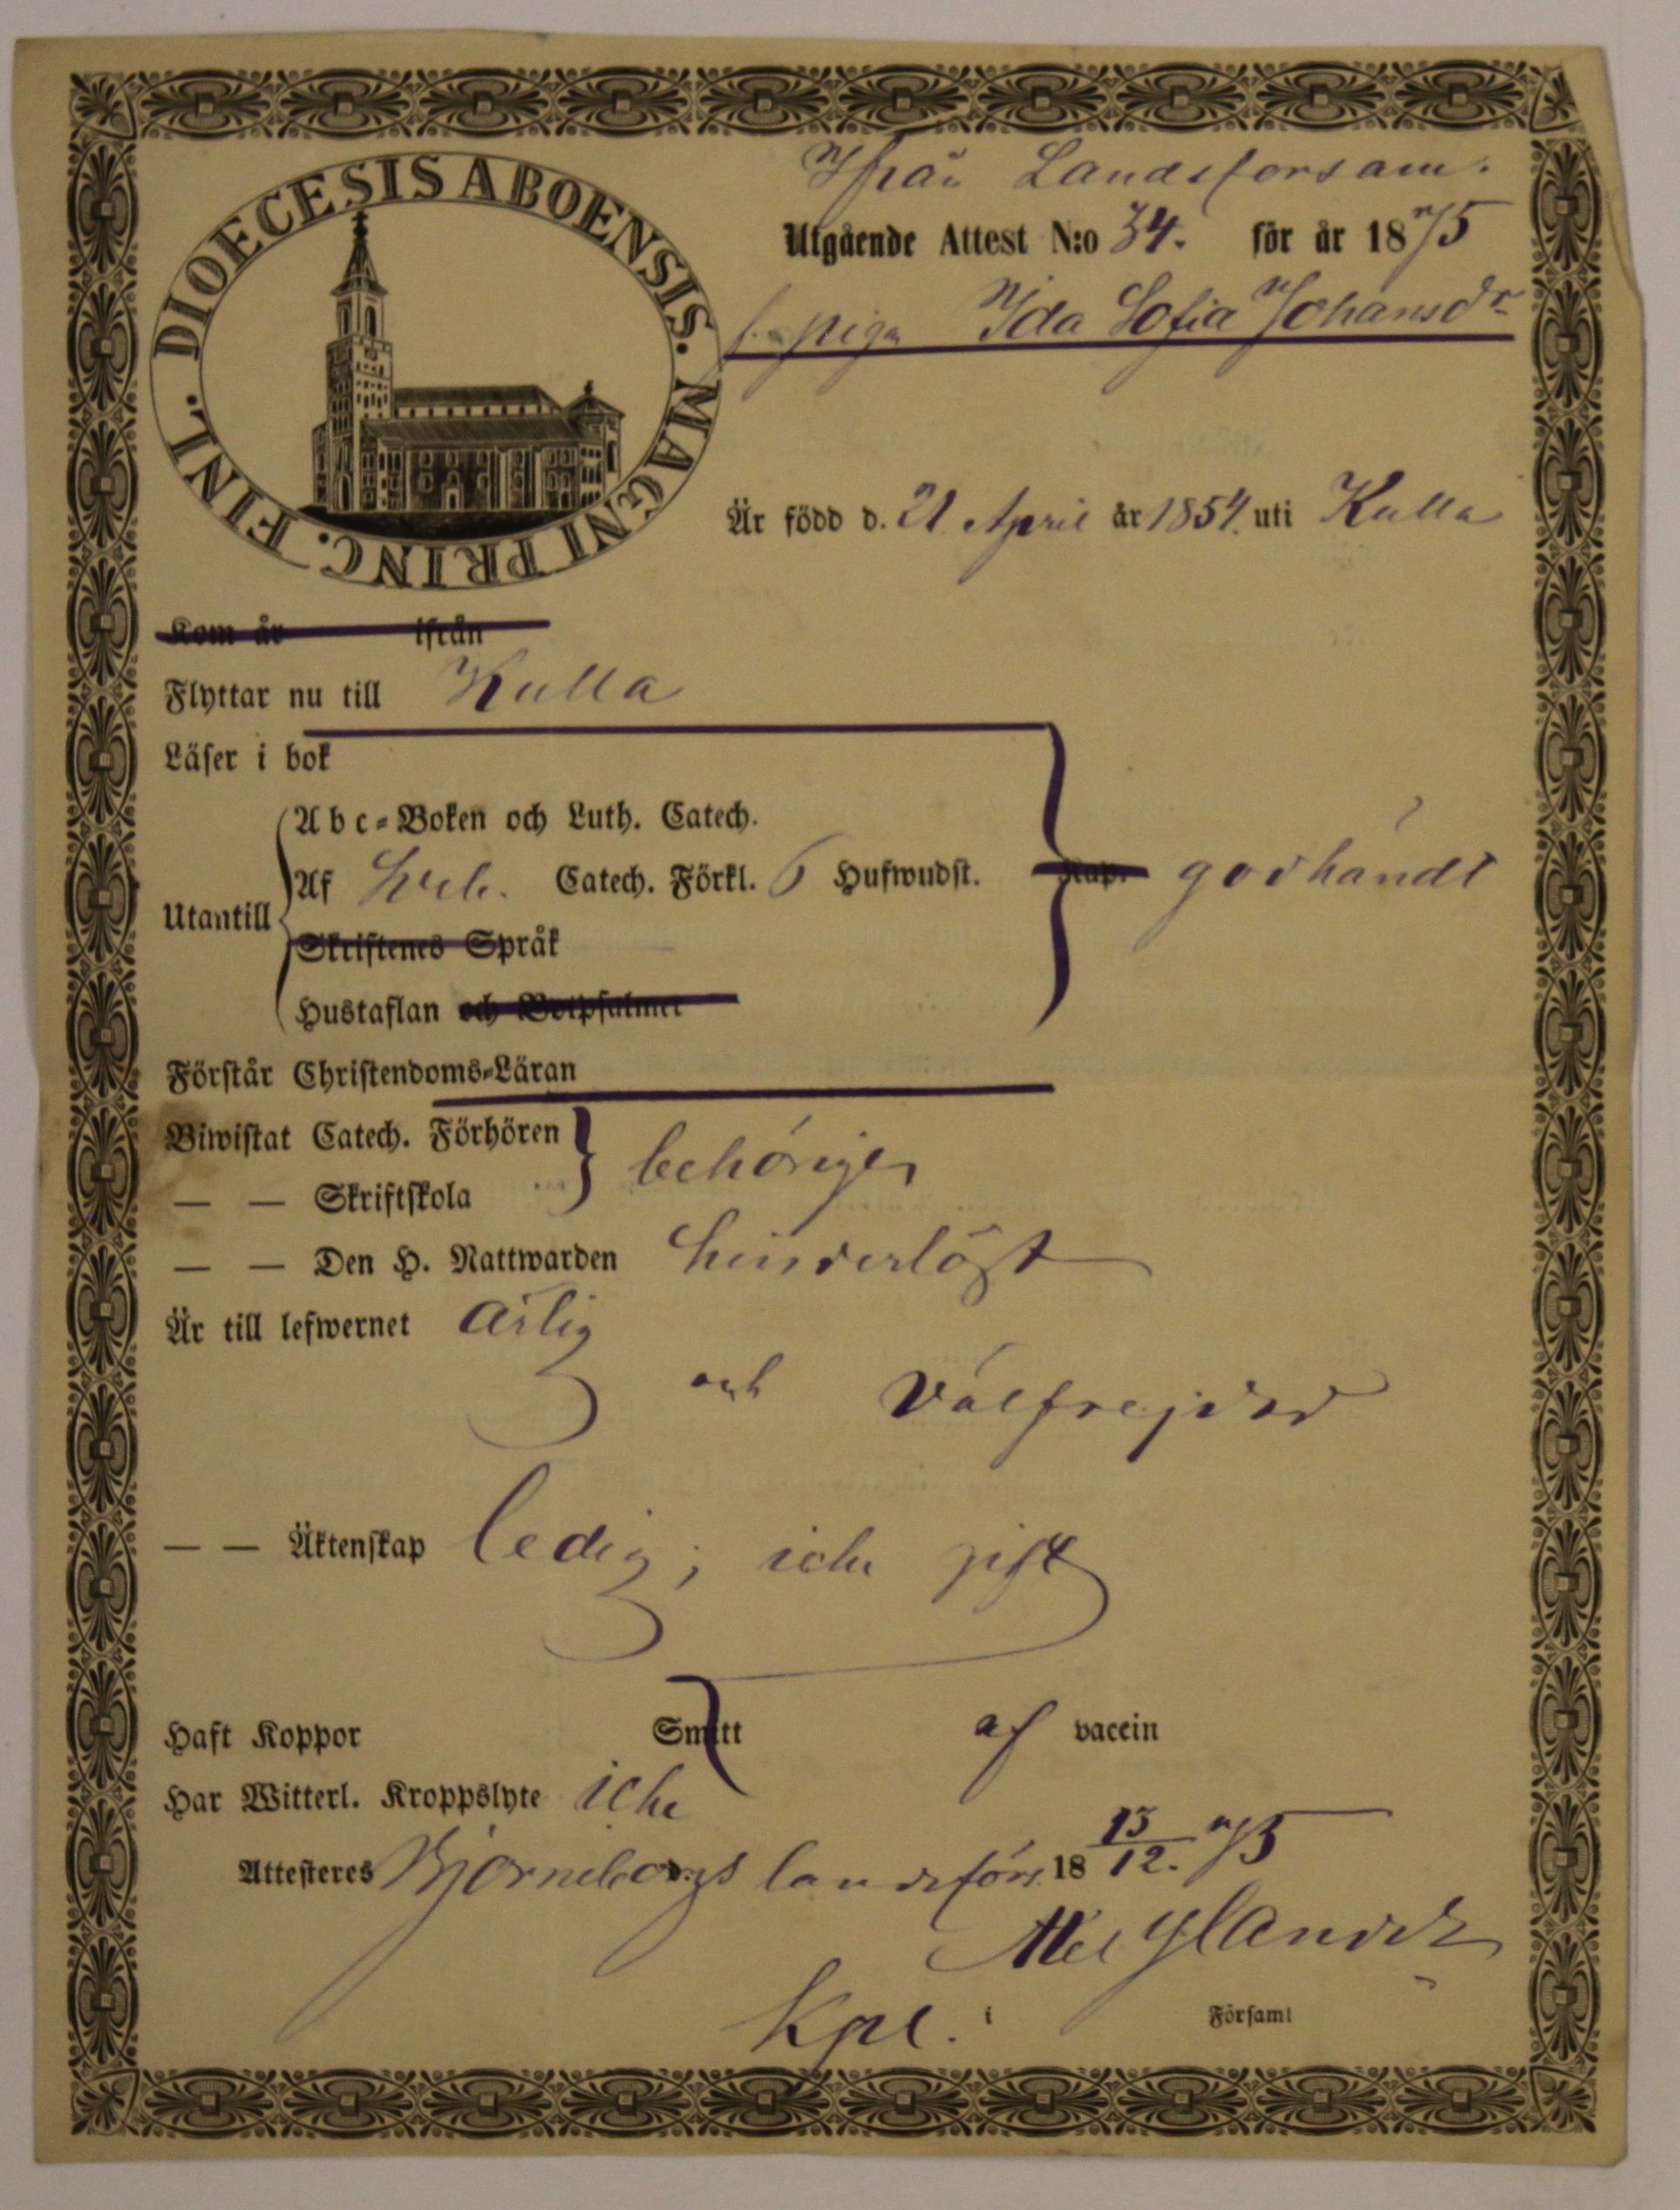 DIOECESIS ABOENSIS. MAGNI PRINC. FINL.
Ifrån Landsförsam.
Utgående Attest N:o 34. för år 1875
pigan Ida Sofia Johansdr
Är född d. 21 April år 1854. uti Kulla
Kom år ifrån
Flyttar nu till Kulla
Läser i bok
Utantill
Abc-Boken och Luth. Catech.
Af Catech. Förkl. 6 Hufwudst. Kap. godkändt
Skriftenes Språk
Hustaflan och Botpsalmer
Förstår Christendoms-Läran
Biwistat Catech. Förhören
— — Skriftskola behörigen
— — Den H. Nattwarden hinderlöst
Är till lefwernet ärlig
och välfrejdad
— — Äktenskap ledig; icke gift
Haft Koppor Smitt af vaccin
Har Witterl. Kroppslyte icke
Attesteres Björneborgs landsförs. 18 13/12. 75
Kpl. i Församl